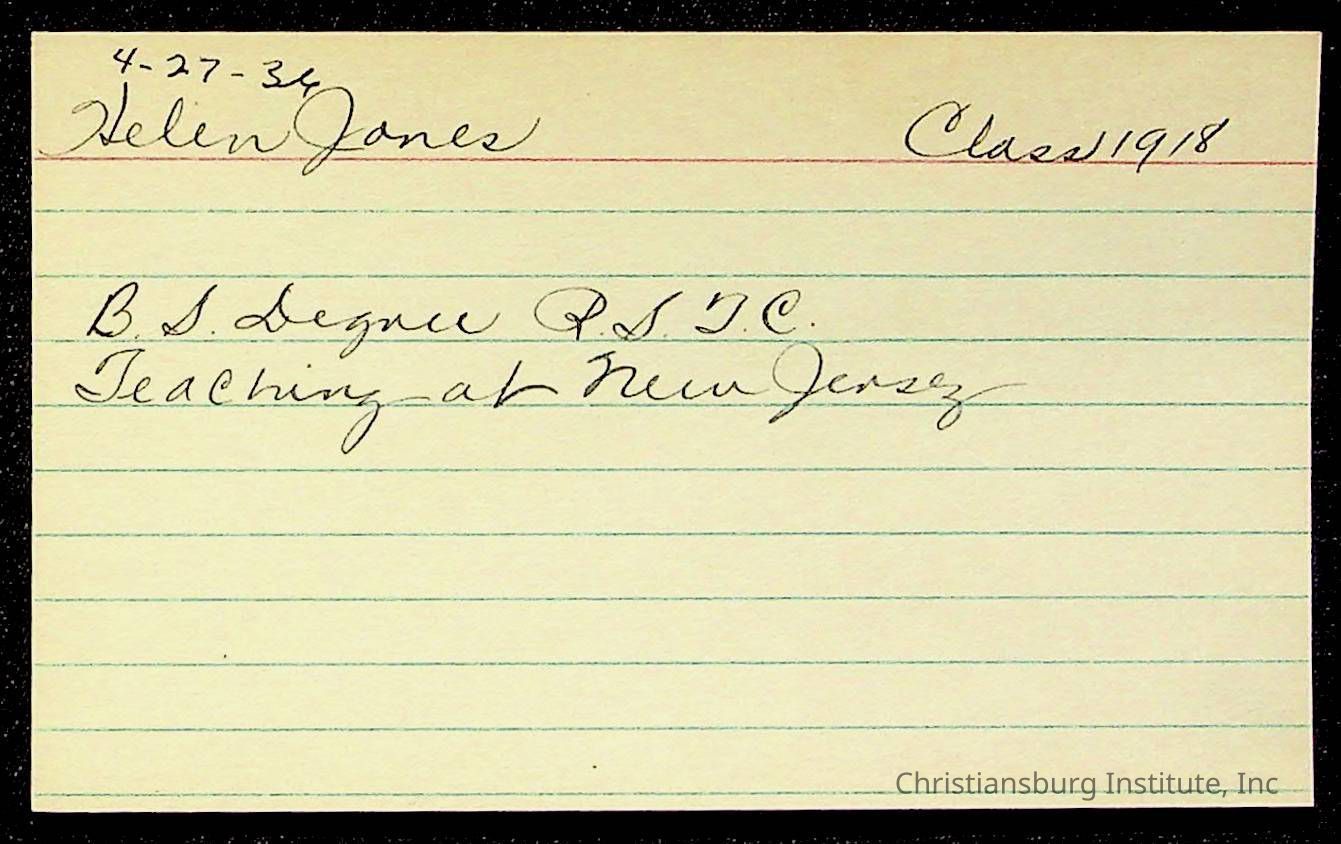 4-27-36
Helen Jones Class 1918
B. S. Degree R. S. T. C.
Teaching at New Jersey
Christiansburg Institute, Inc